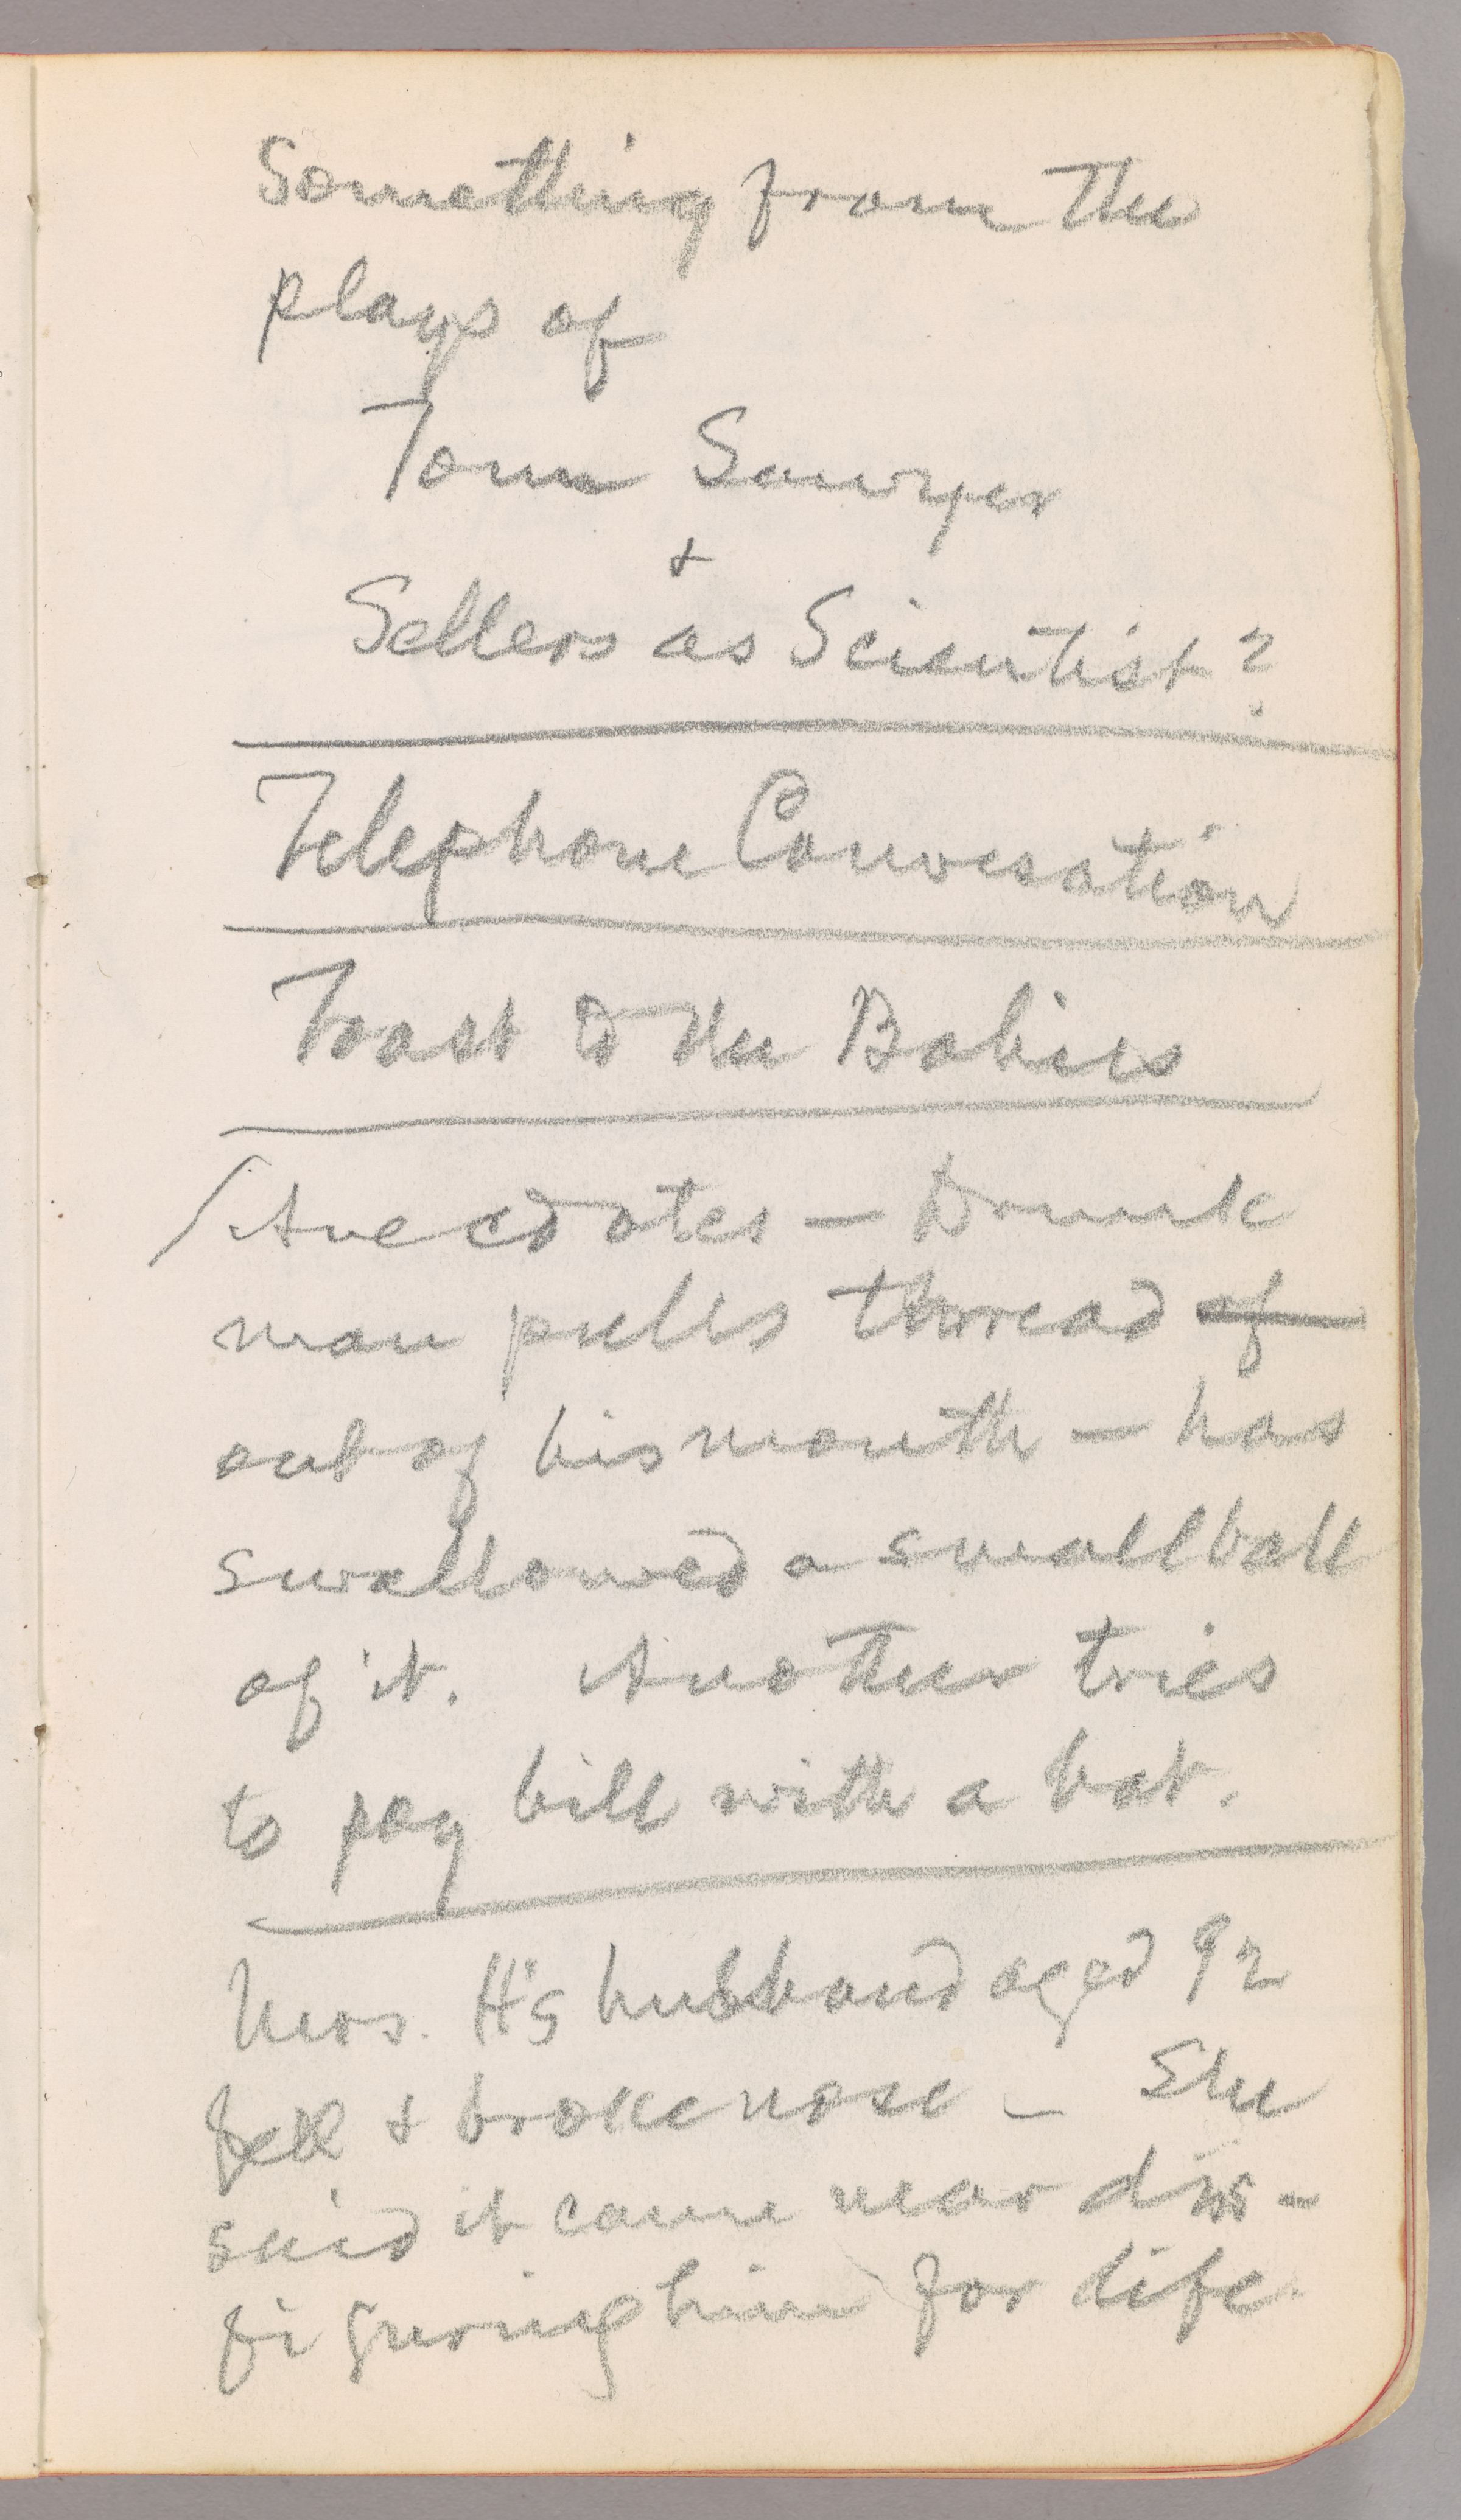 Something from the
plays of
Tom Sawyer
+
Sellers as Scientist?
Telephone Conversation
Toast to the Babies
Anecdotes — Drunk
man pulls thread of
out of his mouth — has
swallowed a small ball
of it. Another tries
to pay bill with a bat.
Mrs. H's husband aged 92
fell + broke nose — She
said it came near dis-
figuring him for life.